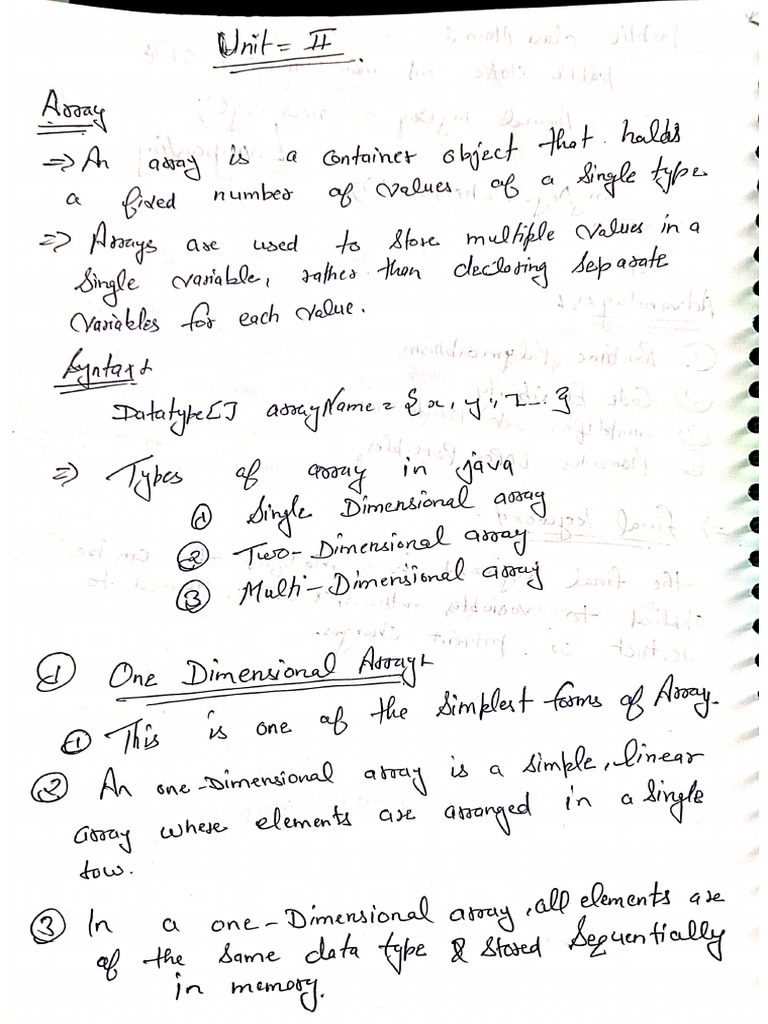 Unit = II
Array
=> An array is a container object that holds
a fixed number of values of a single type.
=> Arrays are used to store multiple values in a
single variable, rather than declaring separate
variables for each value.
Syntax :-
Datatype[] arrayName = {x, y, z_.}
=> Types of array in java
① Single Dimensional array
② Two-Dimensional array
③ Multi-Dimensional array
① One Dimensional Array :-
① This is one of the simplest forms of Array.
② An one-Dimensional array is a simple, linear
array where elements are arranged in a single
row.
③ In a one-Dimensional array, all elements are
of the same data type & stored sequentially
in memory.